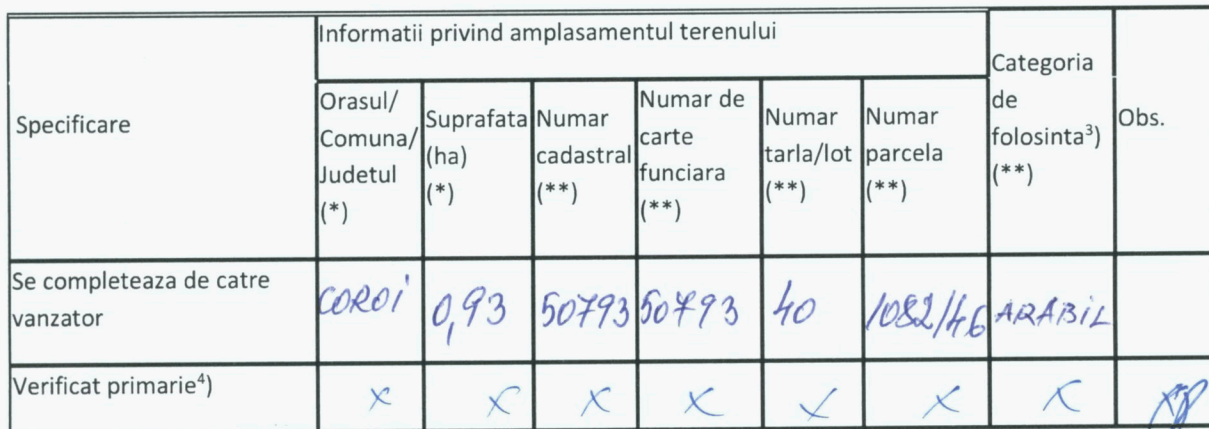 Specificare
Informatii privind amplasamentul terenului
Categoria
de
folosinta³)
(**)
Obs.
Orasul/
Comuna/
Judetul
(*)
Suprafata
(ha)
(*)
Numar
cadastral
(**)
Numar de
carte
funciara
(**)
Numar
tarla/lot
(**)
Numar
parcela
(**)
Se completeaza de catre
vanzator
COROI
0,93
50793
50793
40
1082/46
ARABIL
Verificat primarie⁴)
X
X
X
X
X
X
X